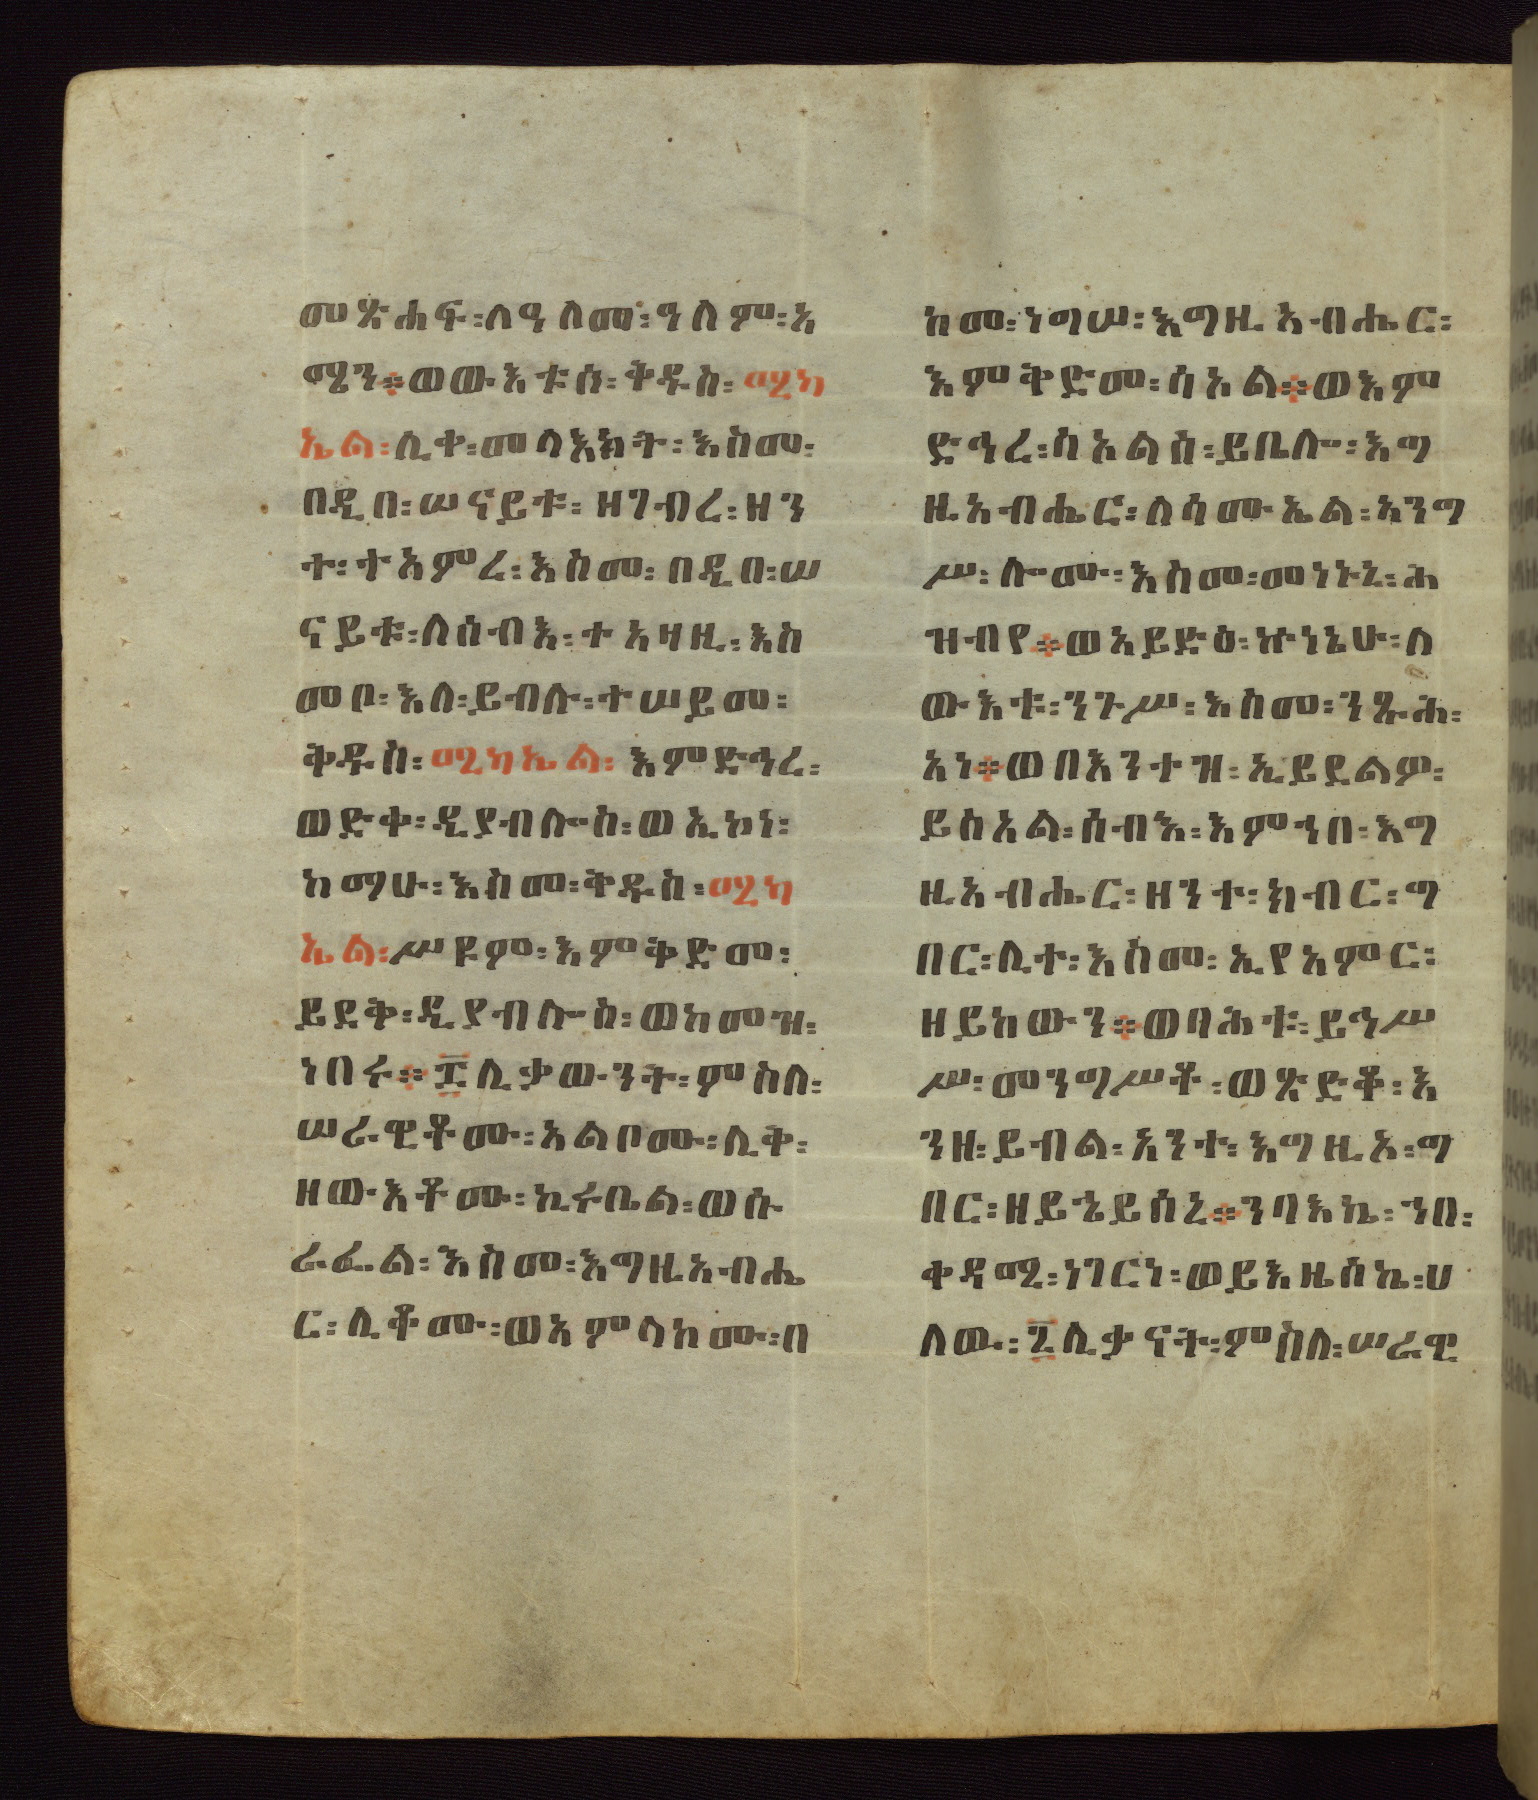 መጽሐፍ፡ለዓለመ፡ዓለም፡አ
ሜን።ወውእቱሰ፡ቅዱስ፡ሚካ
ኤል፡ሊቀ፡መላእክት፡እስመ፡
በዲበ፡ሠናይቱ፡ዘገብረ፡ዘን
ተ፡ተአምረ፡እስመ፡በዲበ፡ሠ
ናይቱ፡ለሰብእ፡ተአዛዚ፡እስ
መቦ፡እለ፡ይብሉ፡ተሠይመ፡
ቅዱስ፡ሚካኤል፡እምድኅረ፡
ወድቀ፡ዲያብሎስ፡ወኢኮነ፡
ከማሁ፡እስመ፡ቅዱስ፡ሚካ
ኤል፡ሥዩም፡እምቅድመ፡
ይደቅ፡ዲያብሎስ፡ወከመዝ፡
ነበሩ።፲ሊቃውንት፡ምስለ፡
ሠራዊቶሙ፡አልቦሙ፡ሊቅ፡
ዘውእቶሙ፡ኪሩቤል፡ወሱ
ራፌል፡እስመ፡እግዚአብሔ
ር፡ሊቆሙ፡ወአምላከሙ፡በ
ከመ፡ነግሠ፡እግዚአብሔር፡
እምቅድመ፡ሳአል።ወእም
ድኅረ፡ስእልሰ፡ይቤሎ፡እግ
ዚአብሔር፡ለሳሙኤል፡አንግ
ሥ፡ሎሙ፡እስመ፡መነኑኒ፡ሕ
ዝብየ።ወአይድዕ፡ኵነኔሁ፡ለ
ውእቱ፡ንጉሥ፡እስመ፡ንጹሕ፡
አነ።ወበእንተዝ፡ኢይደልዎ፡
ይስአል፡ሰብእ፡እምኀበ፡እግ
ዚአብሔር፡ዘንተ፡ክብር፡ግ
በር፡ሊተ፡እስመ፡ኢየአምር፡
ዘይከውን።ወባሕቱ፡ይኅሥ
ሥ፡መንግሥቶ፡ወጽድቆ፡እ
ንዘ፡ይብል፡አንተ፡እግዚኦ፡ግ
በር፡ዘይኄይሰኒ።ንባእኬ፡ኀበ፡
ቀዳሚ፡ነገርነ፡ወይእዜሰኬ፡ሀ
ለው፡፯ሊቃናት፡ምስለ፡ሠራዊ